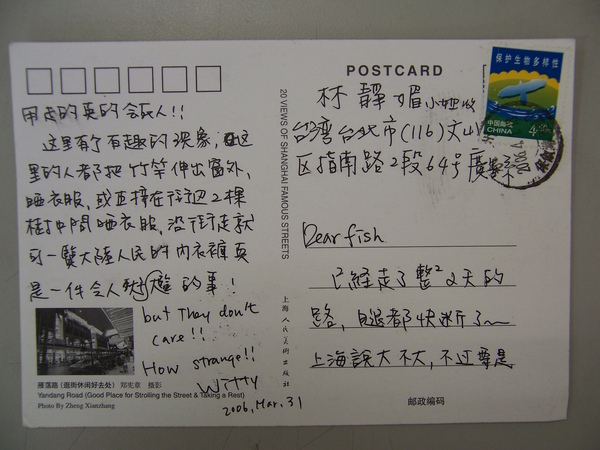 POSTCARD
保护生物多样性
中国邮政
CHINA
林靜媚小姐收
台湾台北市(116)文山
区指南路2段64号廣
Dear fish
已經走了整²2天的
路，腿都快斷了~
上海說大不大，不过要是
邮政编码
用走的真的會死人!!
这里有个有趣的現象，这
里的人都把竹竿伸出窗外，
晒衣服，或直接在街边2棵
樹中間晒衣服，沿街走就
可一覽大陸人民的內衣褲真
是一件令人尷尬的事！
but They don't
care!!
How strange!!
Witty
2006, Mar, 31
雁荡路（逛街休闲好去处） 郑宪章 摄影
Yandang Road (Good Place for Strolling the Street & Taking a Rest)
Photo By Zheng Xianzhang
20 VIEWS OF SHANGHAI FAMOUS STREETS
上海人民美術出版社